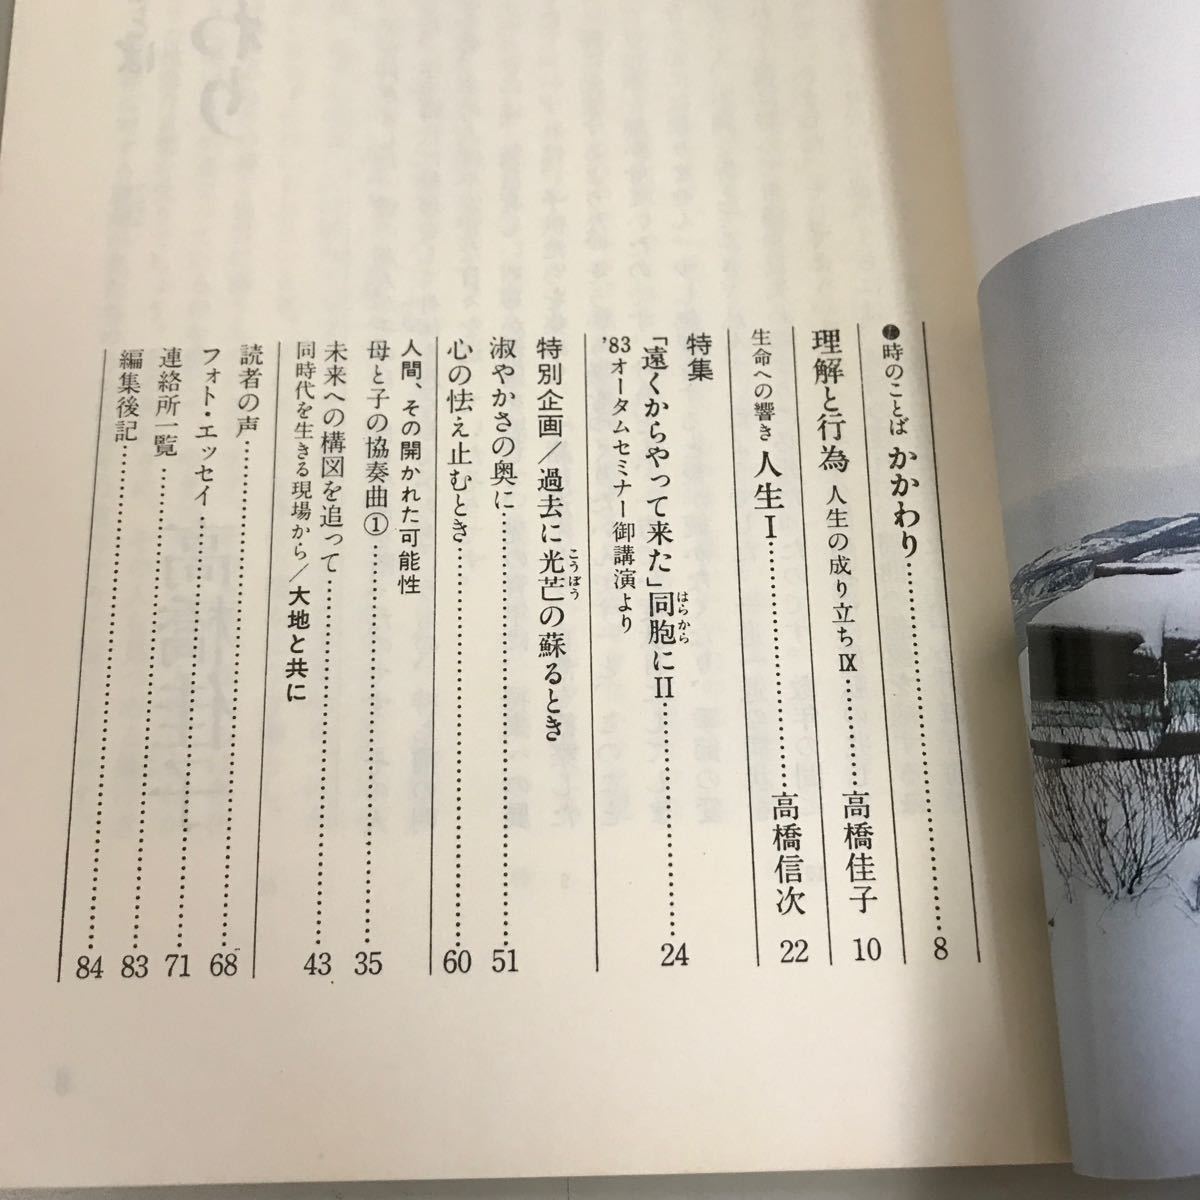 ●時のことば かかわり……8
理解と行為 人生の成り立ちⅨ……高橋佳子 10
生命への響き 人生Ⅰ……高橋信次 22
特集
「遠くからやって来た」同胞にⅡ……24
はらから
'83オータムセミナー御講演より
特別企画/過去に光芒の蘇るとき
こうぼう
淑やかさの奥に……51
心の怯え止むとき……60
人間、その開かれた可能性
母と子の協奏曲①……35
未来への構図を追って……43
同時代を生きる現場から/大地と共に
読者の声……68
フォト・エッセイ……71
連絡所一覧……83
編集後記……84